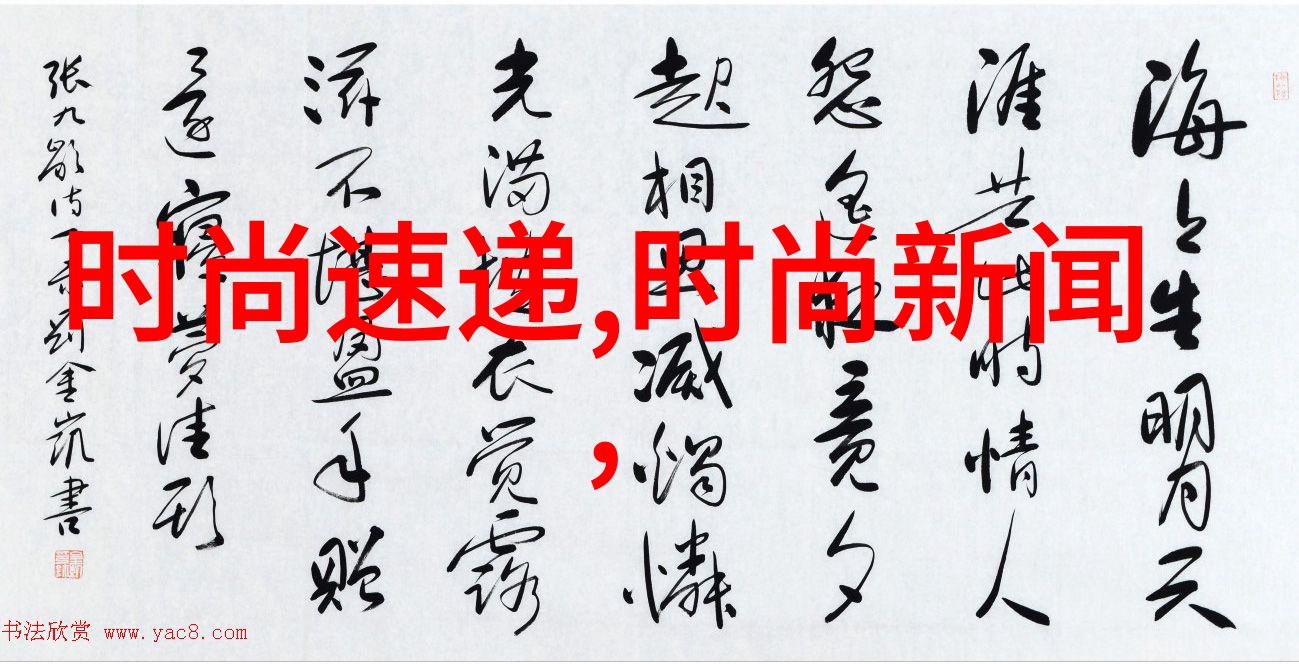 时尚速递,时尚新闻
,
海上生明月天
涯共此時情人
怨遥夜竟夕
起相思滅燭憐
光满披衣觉露
滋不堪盈手赠
還寝梦佳期
张九龄诗一首 刘金凯書
书法欣赏 www.yac8.com